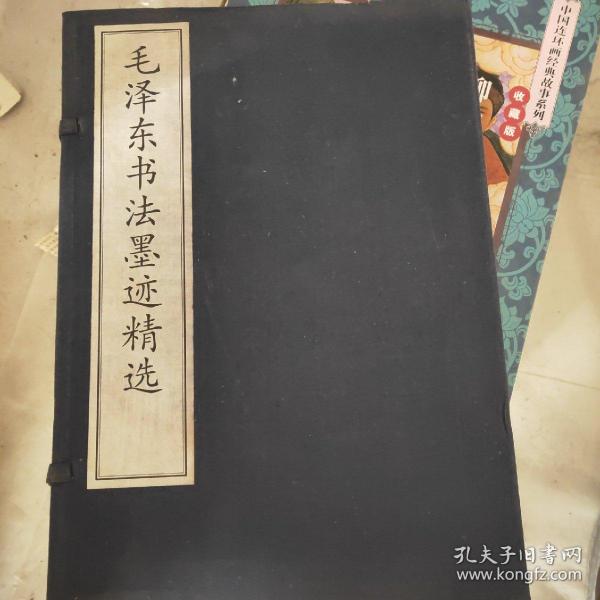 毛泽东书法墨迹精选
中国连环画经典故事系列
收藏版
孔夫子旧书网
www.kongfz.com